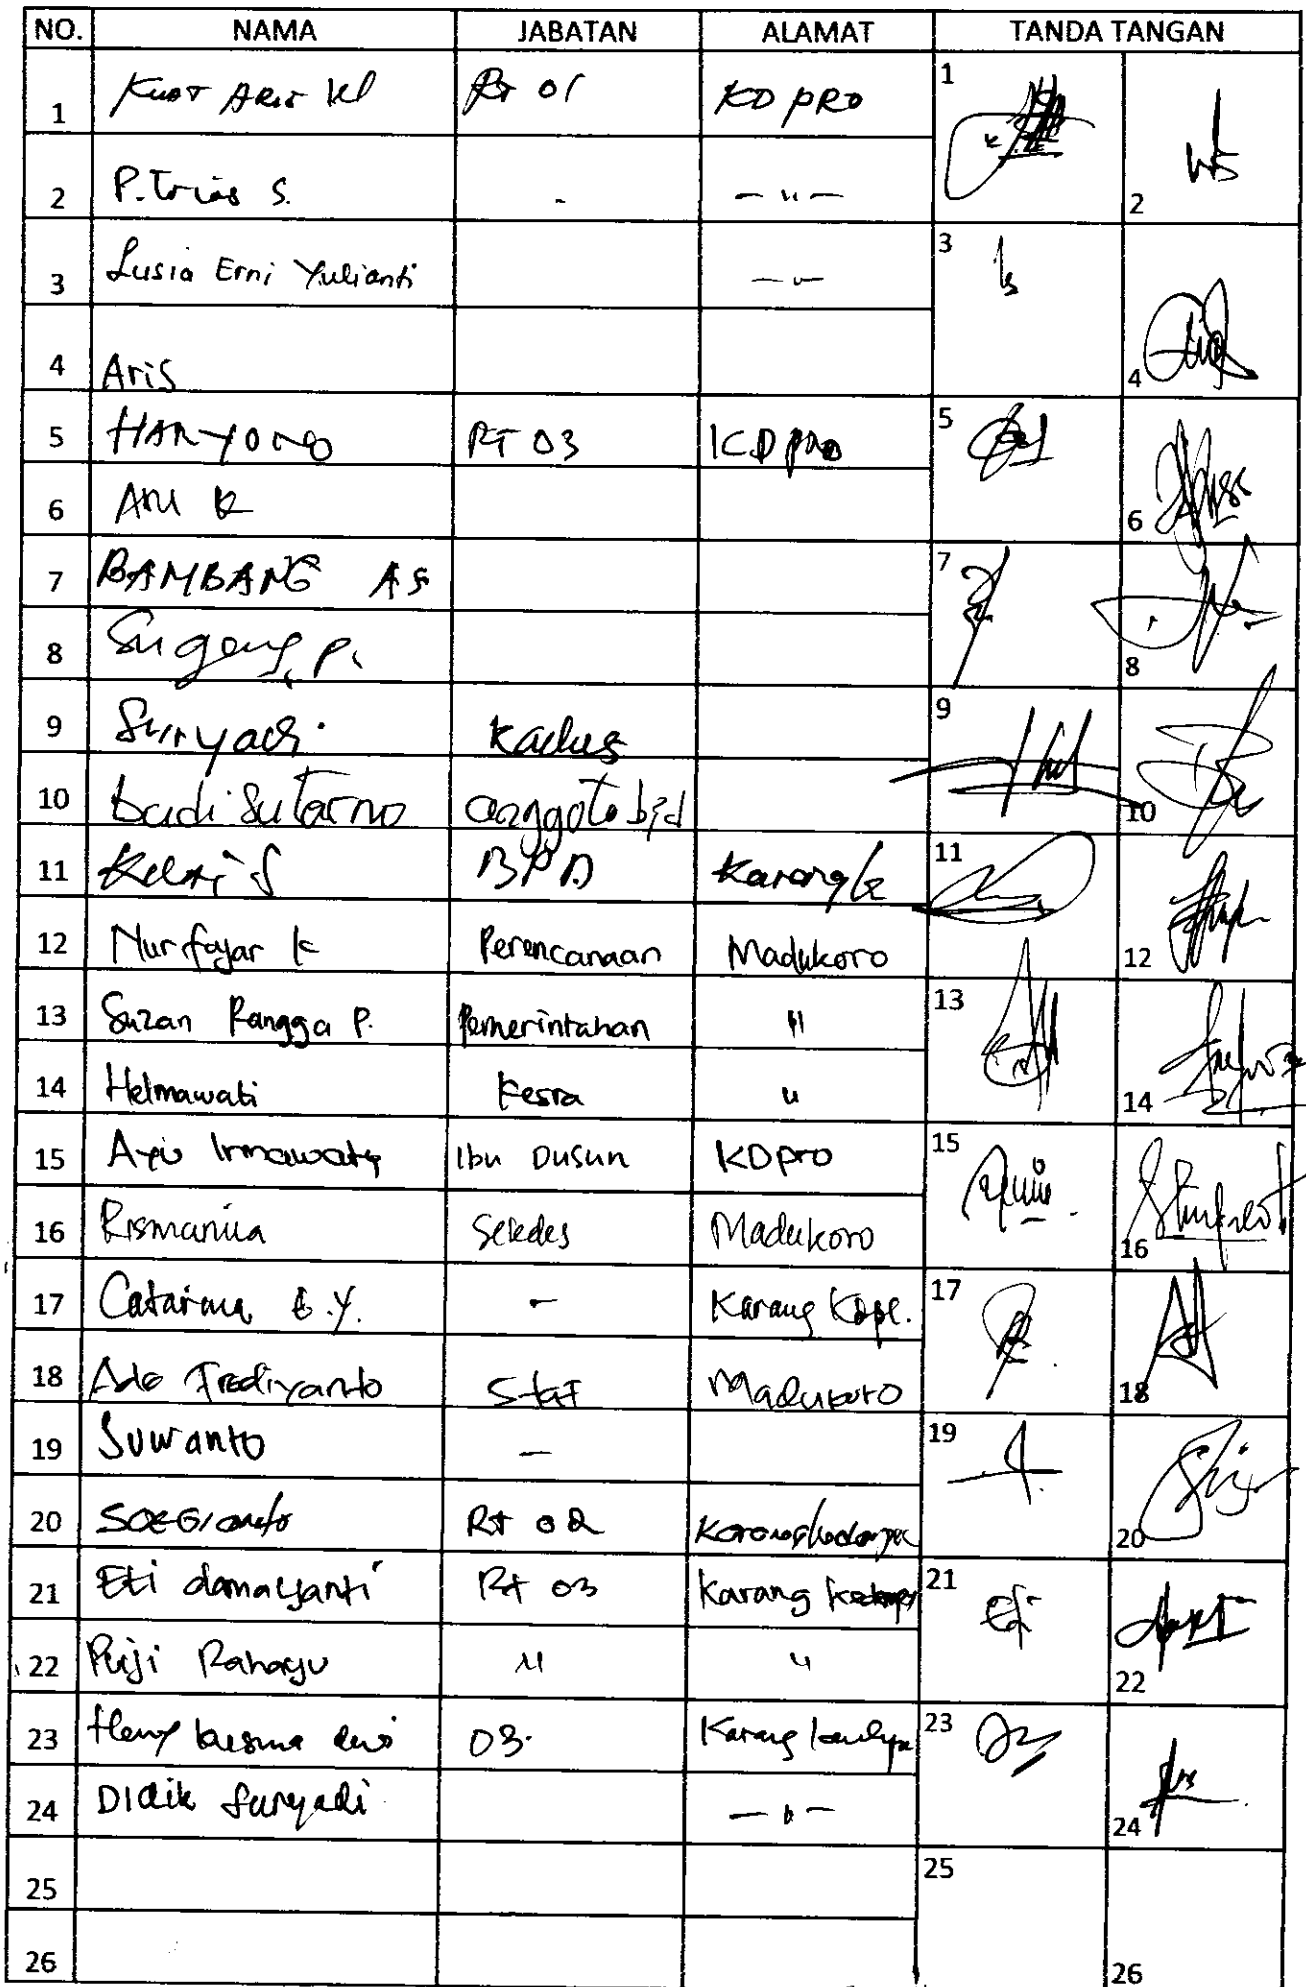 NO. NAMA JABATAN ALAMAT TANDA TANGAN
1 RT 01 KD PRO 1
2 P. Trias S. - -"- 2
3 Lusia Erni Yulianti -"- 3
4 Aris 4
5 HARYONO RT 03 KD PRO 5
6 6
7 BAMBANG AS 7
8 Sugeng P. 8
9 Suryadi. Kadus 9
10 budi Sutarno anggota bpd 10
11 BPD Karang 11
12 Nurfajar K Perencanaan Madukoro 12
13 Suzan Rangga P. Pemerintahan " 13
14 Helmawati Kesra " 14
15 Ayu Irmawaty Ibu Dusun KDpro 15
16 Rismanila Sekdes Madukoro 16
17 Catarina E.Y. - Karang Kdpl. 17
18 Ade Frediyanto Staf Madukoro 18
19 Suwanto - 19
20 SOEGIanto Rt 02 20
21 Eti damayanti Rt 03 Karang 21
22 Puji Rahayu " " 22
23 Heny kusuma dewi 03. Karang 23
24 Didik Suryadi -"- 24
25 25
26 26